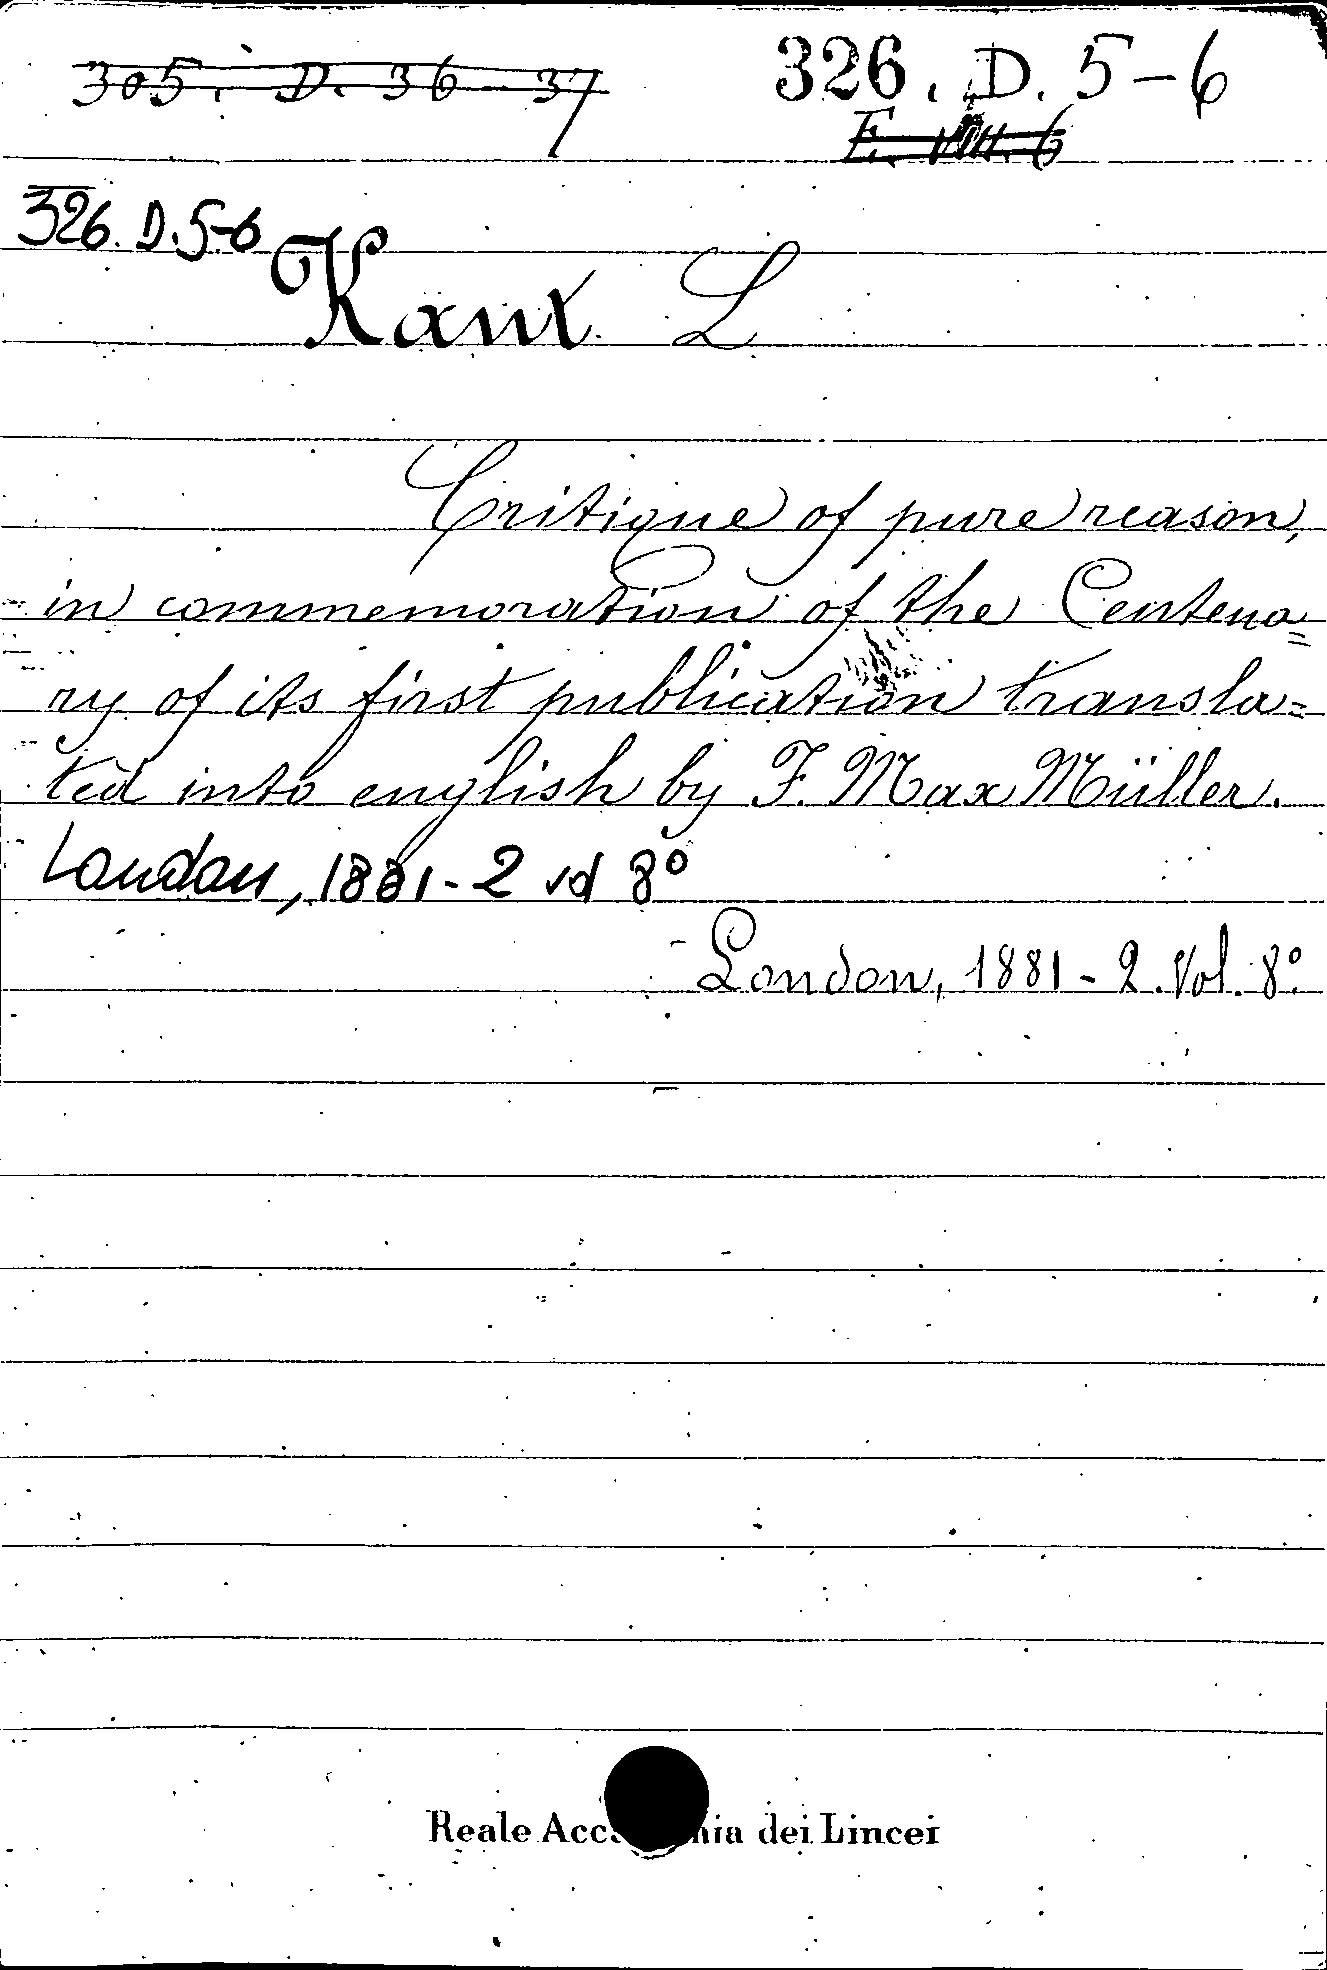 305. D. 36-37
326. D. 5-6
E. VIII. 6
326. D. 5-6
Kant L
Critique of pure reason,
in commemoration of the Centena=
ry of its first publication transla=
ted into english by F. Max Müller.
London, 1881 - 2 vol 8°
London, 1881 - 2. Vol. 8°
Reale Acc mia dei Lincei